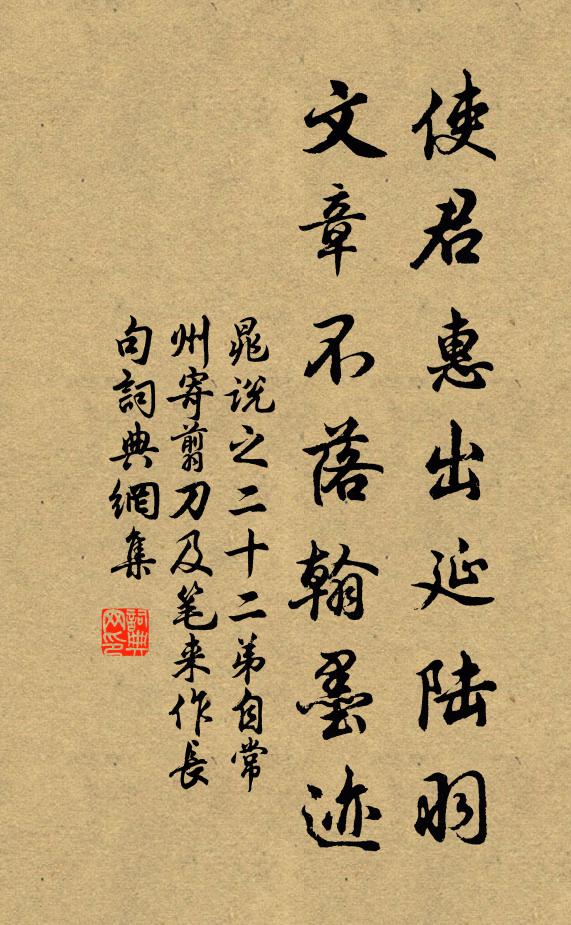 使君惠出延陆羽
文章不落翰墨迹
晁说之二十二弟自常
州寄剪刀及笔来作長
句詞典網集
詞典网印